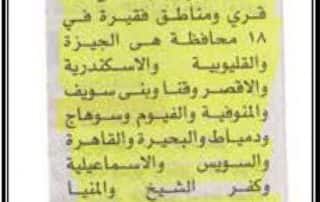 قري ومناطق فقيرة في
١٨ محافظة هى الجيزة
والقليوبية والاسكندرية
والاقصر وقنا وبنى سويف
والمنوفية والفيوم وسوهاج
ودمياط والبحيرة والقاهرة
والسويس والاسماعيلية
وكفر الشيخ والمنيا